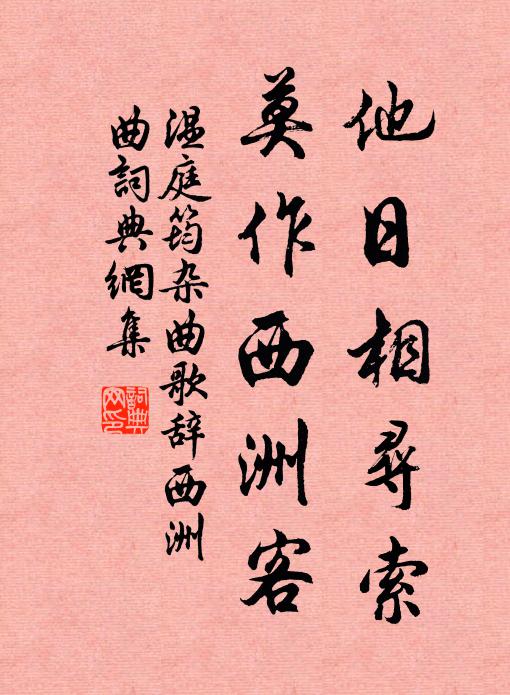 他日相尋索
莫作西洲客
温庭筠杂曲歌辞西洲
曲詞典網集
詞典
网印